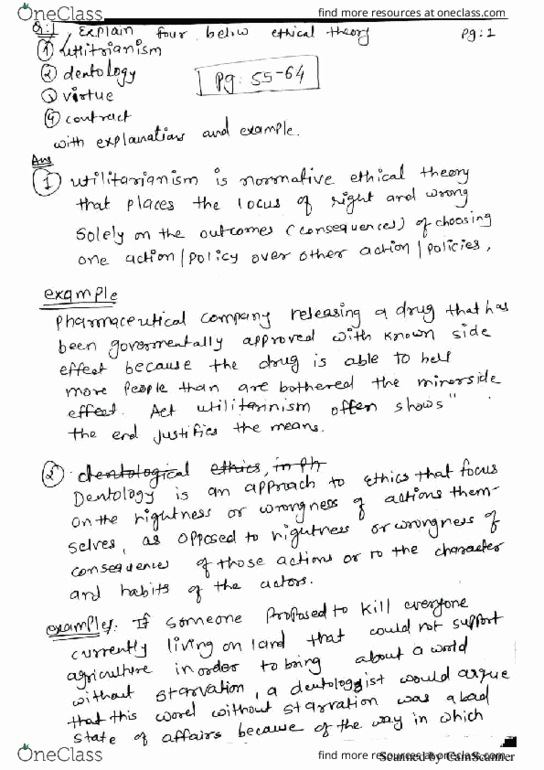 OneClass
find more resources at oneclass.com
Q:1 Explain four below ethical theory Pg:1
① utlitrianism
② dentology Pg: 55-64
③ virtue
④ contract
with explainations and example.
Ans
① utilitarianism is normative ethical theory
that places the locus of right and wrong
solely on the outcomes (consequences) of choosing
one action/policy over other action/policies,
example
Pharmaceutical company releasing a drug that has
been govermentally approved with known side
effect because the drug is able to help
more people than are bothered the minorside
effect. Act utiliterinism often shows "
the end justifies the means.
② dentological ethics, in Ph
Dentology is an approach to ethics that focus
on the rightness or wrongness of actions them-
selves, as opposed to rightness or wrongness of
consequence of those actions or to the character
and habits of the actors.
examples: If someone proposed to kill everyone
currently living on land that could not support
agriculture in order to bring about a world
without starvation, a dentologgist would argue
that this worel without starvation was a bad
state of affairs because of the way in which
OneClass
find more resources at oneclass.com
Scanned by CamScanner